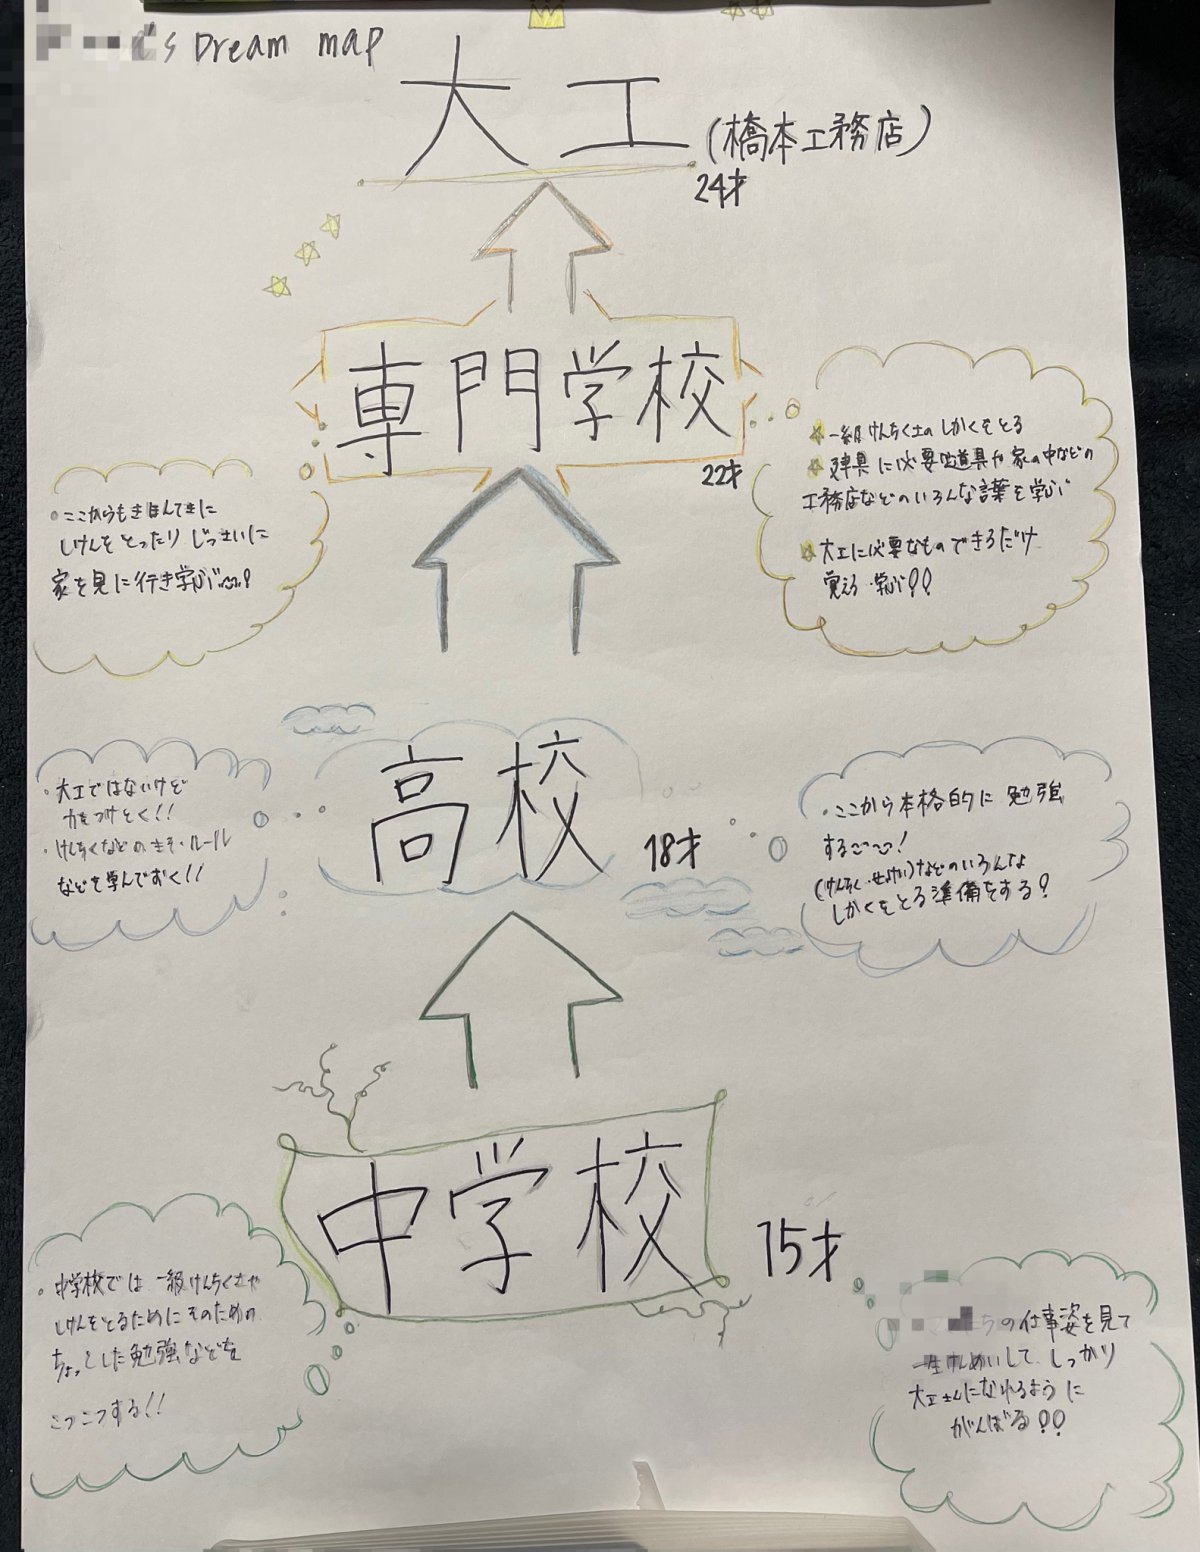 's Dream map
大工
(橋本工務店)
24才
専門学校
22才
☆一級けんちく士のしかくをとる
☆建具に必要な道具や家の中などの
工務店などのいろんな言葉を学ぶ
☆大工に必要なものできるだけ
覚える・学ぶ!!
・ここからもきほんてきに
しけんをとったりじっさいに
家を見に行き学ぶ
高校
18才
・大工ではないけど
力をつけとく!!
・けんちくなどのきそ・ルール
などを学んでおく!!
・ここから本格的に勉強
する
(けんちく・せっけい)などのいろんな
しかくをとる準備をする!
中学校
15才
・中学校では一級けんちく士や
しけんをとるためにそのための
ちょっとした勉強などを
こつこつする!!
の仕事姿を見て
一生けんめいして、しっかり
大工さんになれるように
がんばる!!